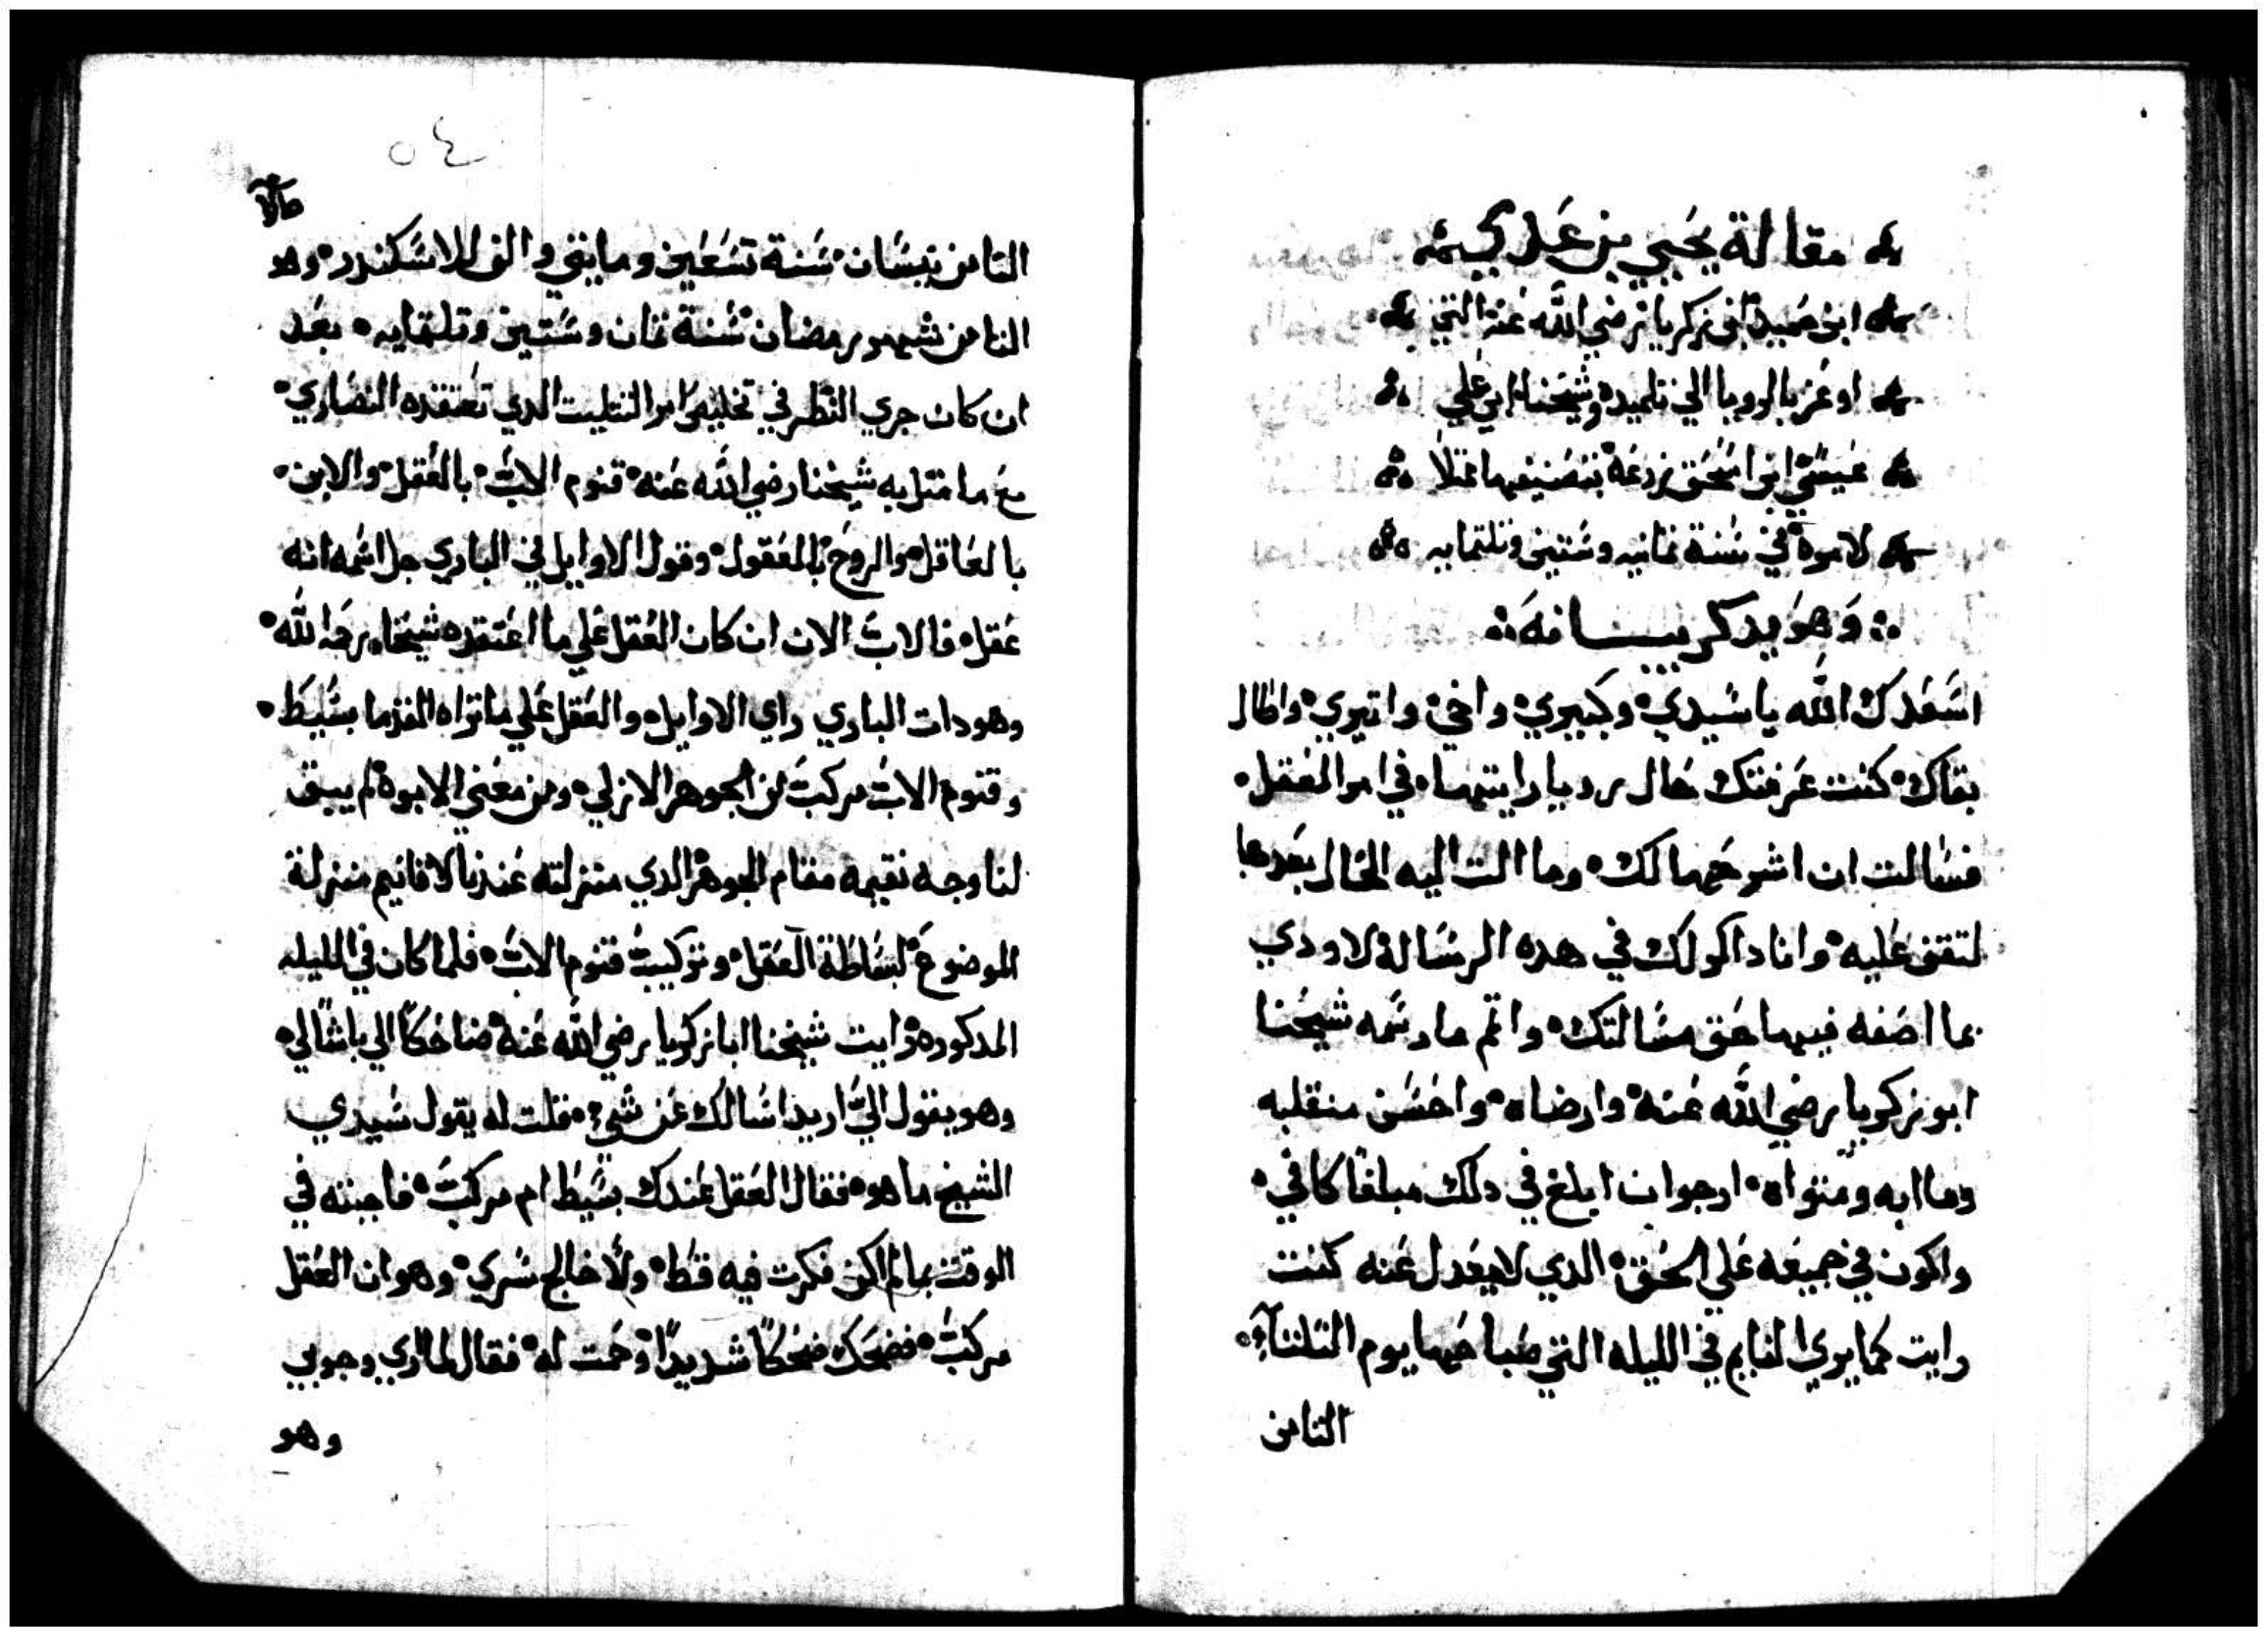 مقالة يحيي بن عدي
ابن حميد ابي زكريا رضي الله عنه التي
اوعز بالرويا الي تلميده وشيخنا ابي علي
عيسي ابن اسحق زرعه بتصنيفها متثلا
لامره في سنة تمانيه وستين وتلتمايه
وهو يدكر بيانه
اسعدك الله يا سيدي وكبيري واخي واتيري واطال
بقاك كنت عرفتك حال رويا رايتها في امر العقل
فسالت ان اشرحها لك وما الت اليه الحال بعدها
لتقف عليه وانا داكر لك في هده الرسالة لاودي
بما اصفه فيها حق مسالتك واتم ما رسمه شيخنا
ابو زكريا رضي الله عنه وارضاه واحسن منقلبه
وماابه ومتواه ارجوا ان ابلغ في دلك مبلغا كافي
واكون في جميعه علي الحق الدي لا يعدل عنه كنت
رايت كما يري النايم في الليله التي صباحها يوم التلتآء
التامن
٥٤
التامن نيسان سنة تسعين ومايتي والف للاسكندر وهو
التامن شهر رمضان سنة تمان وستين وتلتمايه بعد
ان كان جري النظر في امر التتليت الدي تعتقده النصاري
مع ما متل به شيخنا رضي الله عنه قنوم الاب بالعقل والابن
بالعاقل والروح بالمعقول وقول الاوايل في الباري جل اسمه انه
عقل فالاب الان ان كان العقل علي ما اعتقده شيخنا رحمه الله
وهو دات الباري راي الاوايل والعقل علي ما تراه القدما بسيط
وقنوم الاب مركب من الجوهر الازلي ومن معني الابوة لم يبق
لنا وجه نقيمه مقام الجوهر الدي منزلته عندنا الاقانيم منزلة
الموضوع لبساطة العقل وتركيب قنوم الاب فلما كان في الليله
المدكوره رايت شيخنا ابا زكريا رضي الله عنه ضاحكا الي باشا لي
وهو يقول الي اريد اسالك عن شي فقلت له يقول سيدي
الشيخ ما هو فقال العقل عندك بسيط ام مركب فاجبته في
الوقت بما لم اكن فكرت فيه قط ولا خالج سري وهو ان العقل
مركب فضحك ضحكا شديدا وحمت له فقال لما اري وجوبي
وهو